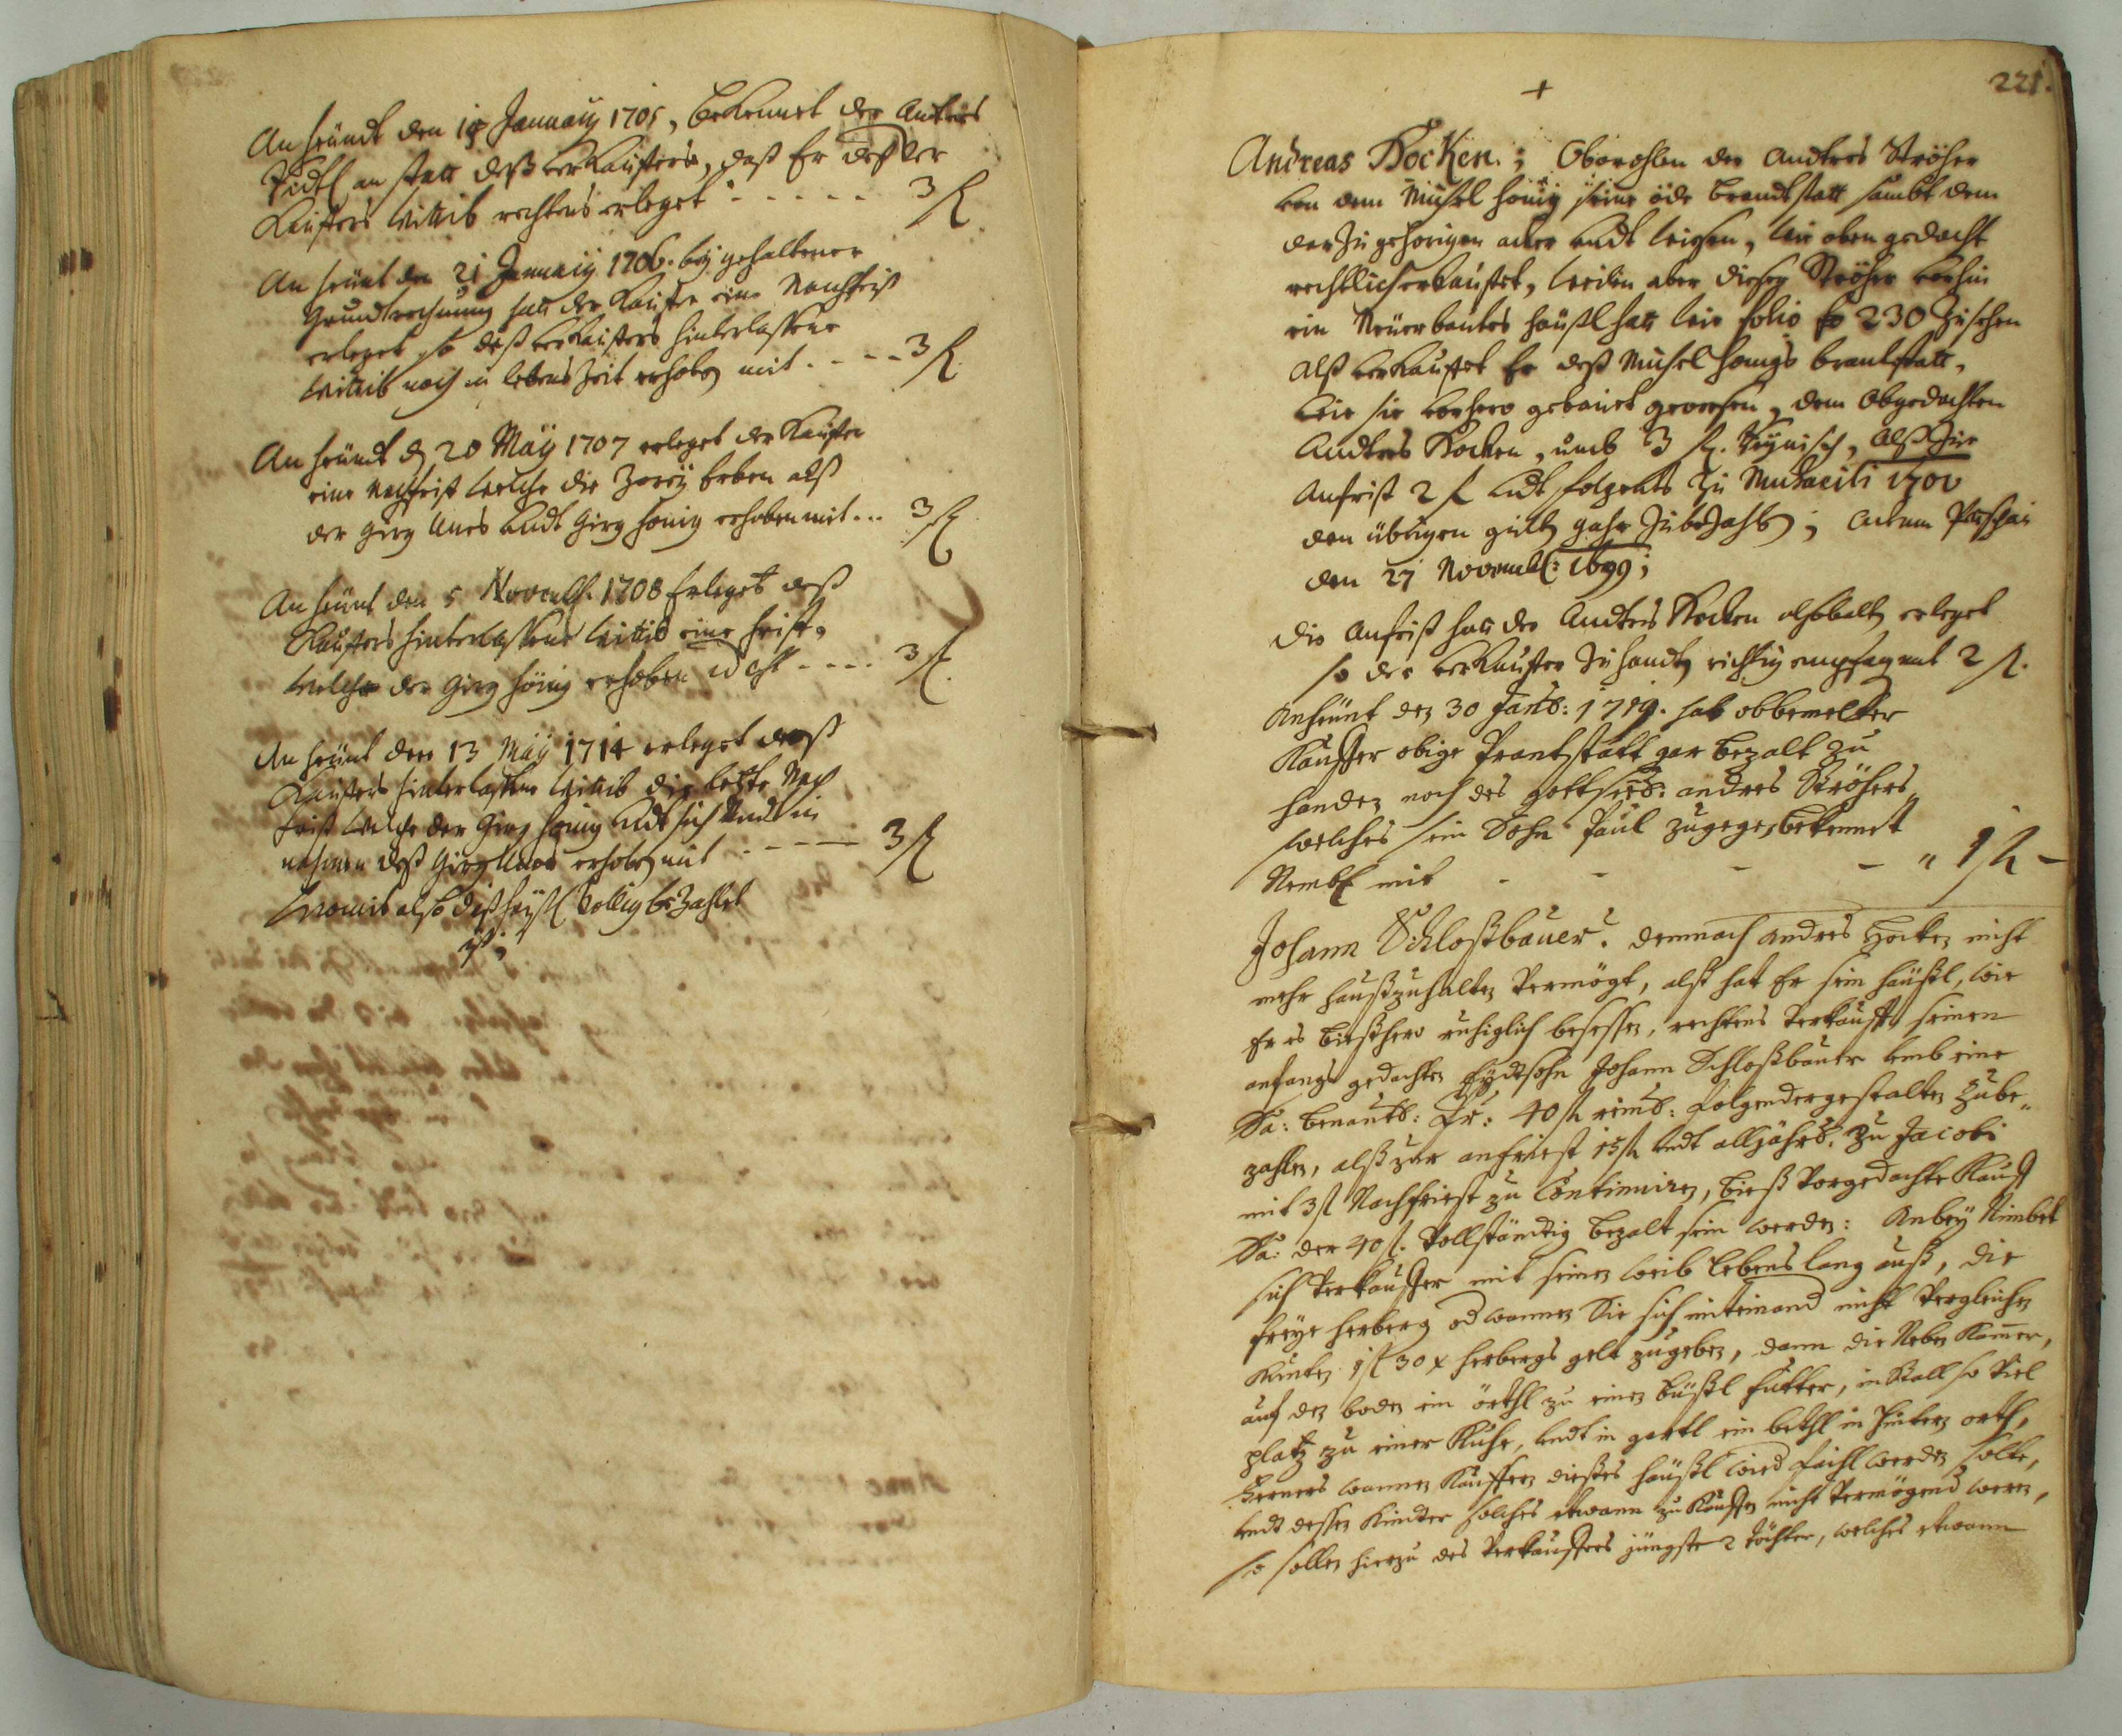 An heündt den 15 Januarij 1705, bekennet der Andres
Pidtl an statt deß verkauffers, daß Er deß ver
Kauffers Wittib rechtens erleget - - - - - - 3 fl
An heünt den 21 Januarij 1706. bey gehaltener
Grundtrechnung hatt der Kauffer eine Nachfrist
erleget, so deß verkauffers hinterlassene
Wittib noch in lebens Zeit erhoben mit - - - - 3 fl
An heündt d 20 Maÿ 1707 erleget der Kauffer
eine nachfrist welche die Erben alß
der Girg undt Girg Hönig erhoben mit ... 3 fl
An heünt den 5 Novemb. 1708 Erleget deß
Kauffers hinterlassene Wittib eine frist,
welche der Girg Hönig erhoben - - - - 3 fl.
An heünt den 13 Maÿ 1714 erleget deß
Kauffers hinterlassene Wittib die letzte Nach
frist welche der Girg Hönig undt in
nahmen deß Girg erhoben mit - - - - 3 fl
Womit also diß heüßl völlig bezahlet
ist;
+
221.
Andreas Hocken.; Obwohlen der Andres Ströher
von dem Michel Hönig seine öde brandtstatt sambt dem
darzu gehörigen acker undt wiesen, wie oben gedacht
rechtlich erkauffet, weilen aber dieser Ströher vorhin
ein Neüerbautes häußl hatt wie folio 230 zu sehen
Alß verkauffet Er deß Michel Hönigs brandtstatt,
wie sie vorhero gebauet gewesen, dem Obgedachten
Andres Hocken, umb 3 fl. Reynisch, Alß zur
Anfrist 2 f undt folgents zu 1700
den übrigen guld gahr zu bezahlen; Actum
den 27 Novembr: 1699;
Die Anfrist hatt der Andres Hocken alsobaldt erleget
so der verkauffer zu handen richtig empfangen mit 2 fl.
Anheünt den 30 1719. hat obbemelter
Kauffer obige Prantstatt gar bezalt zu
handen noch des andres Ströhers,
welches sein Sohn Paul zugegen bekennet
Nembl mit - - - " 1 fl -
Johann Schloßbauer. demnach andres Hocken nicht
mehr haußzuhalten Vermögt, alß hat Er sein häußl, wie
Er es bießhero ruhiglich besessen, rechtens Verkaufft seinen
anfangs gedachten Eydtsohn Johann Schloßbauer umb eine
Sa: benantl: Pr: 40 fl reinl: folgendergestalten zube„
zahlen, alß zur anfriest 15 fl undt alljährl: zu Jacobi
mit 3 fl Nachfriest zu Continuiren, bieß Vorgedachte Kauff
Sa: der 40 fl. Vollständig bezalt sein werden: Anbey Nimbet
sich Verkauffer mit seinen weib Lebenslang auß, die
freye herberg od wannen Sie sich miteinand nicht Vergleichen
Kunten 1 fl 30 x herbergs gelt zugeben, dann die Neben Kamer,
auf den boden ein örthl zu einen büßl futter, in Stall so viel
platz zu einer Kuhe, undt in gartl ein bethl in hintern orth,
Ferners wannen Kauffern dießes häußl wied failh werden solte,
undt dessen Kinder solches etwann zu Kauffen nicht Vermögend weren,
so sollen hierzu des Verkauffers jüngste 2 töchter, welches etwann